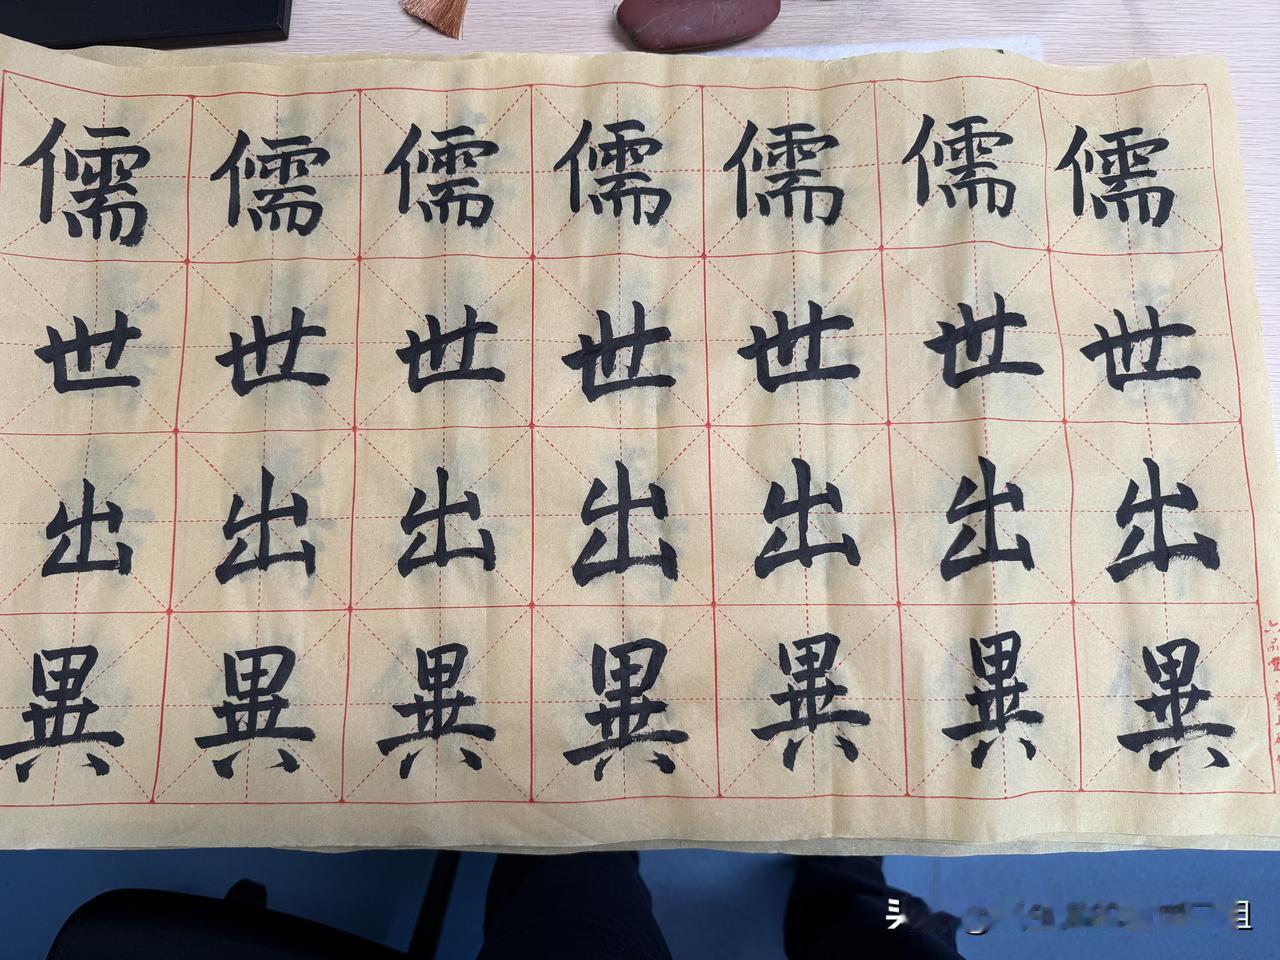 儒儒儒儒儒儒儒
世世世世世世世
出出出出出出出
異異異異異異異